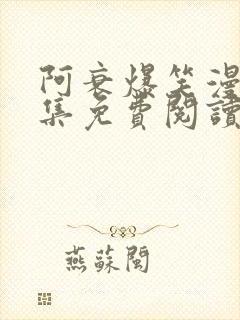 阿衰爆笑漫
集免費閱讀
燕蘇閩